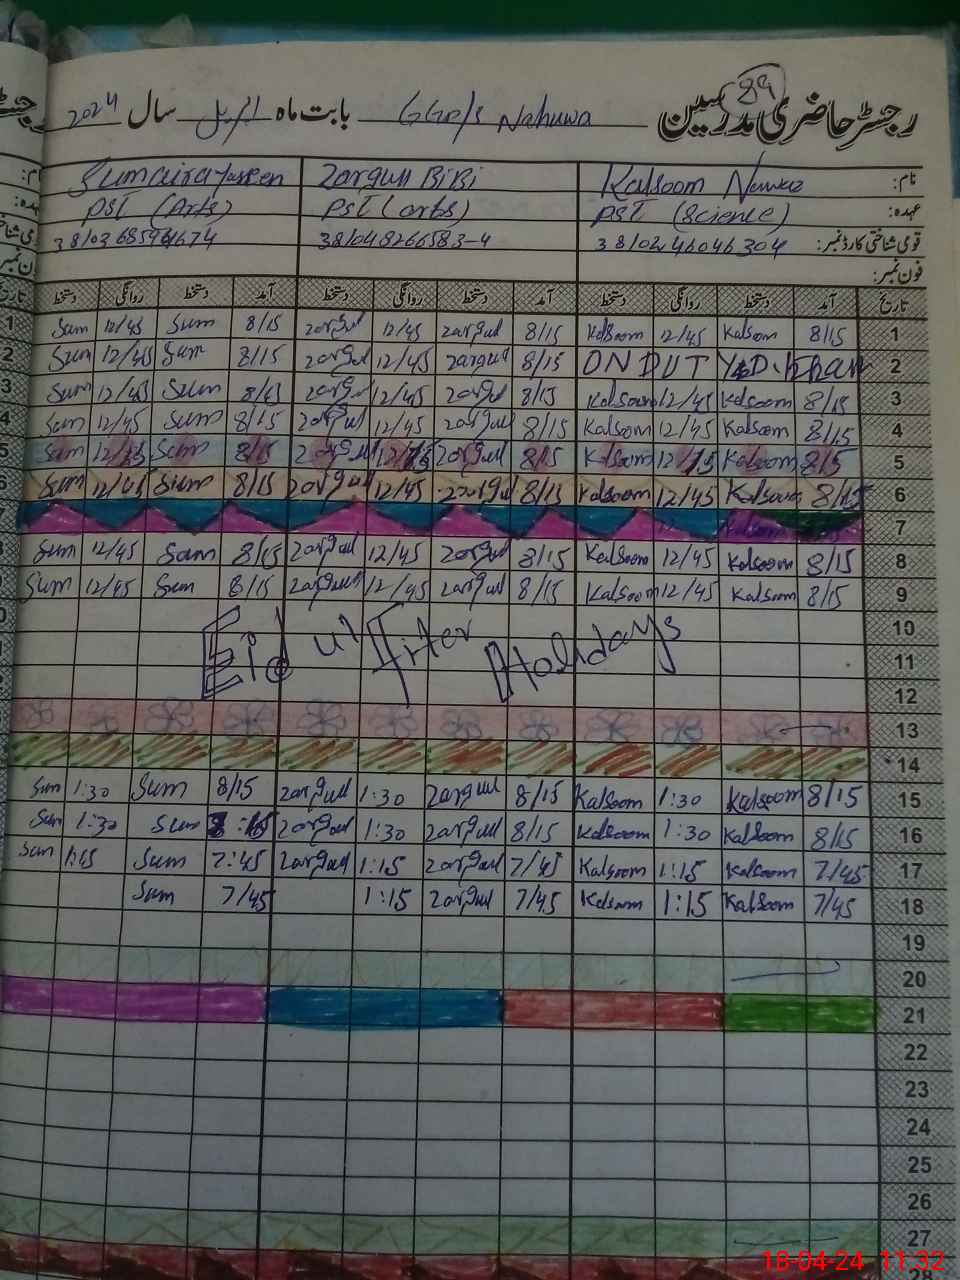 رجسٹر حاضری مدرسین 89 GGP/s Nahuwa بابت ماہ اپریل سال 2024
نام: Kalsoom Nawaz Zargull BiBi Sumaira Yasmeen
عہدہ: PST (Science) PST (arts) PST (Arts)
قومی شناختی کارڈ نمبر:
فون نمبر:
تاریخ آمد دستخط روانگی دستخط آمد دستخط روانگی دستخط آمد دستخط روانگی دستخط
Sum 12/45 Sum 8/15 zargul 12/45 zargul 8/15 Kalsoom 12/45 Kalsoom 8/15 1
Sum 12/45 Sum 8/15 zargul 12/45 zargul 8/15 ON DUT 2
Sum 12/45 Sum 8/15 zargul 12/45 zargul 8/15 Kalsoom 12/45 Kalsoom 8/15 3
Sum 12/45 Sum 8/15 zargul 12/45 zargul 8/15 Kalsoom 12/45 Kalsoom 8/15 4
Sum Sum 8/15 zargul zargul 8/15 Kalsoom Kalsoom 8/15 5
Sum 12/45 Sum 8/15 zorgul 12/45 zorgul 8/15 Kalsoom 12/45 Kalsoom 8/15 6
7
Sum 12/45 Sum 8/15 zargul 12/45 zargul 8/15 Kalsoom 12/45 Kalsoom 8/15 8
Sum 12/45 Sum 8/15 zargul 12/45 zargul 8/15 Kalsoom 12/45 Kalsoom 8/15 9
10
Eid ul Fiter Holidays
11
12
13
14
Sum 1:30 Sum 8/15 zargul 1:30 zargul 8/15 Kalsoom 1:30 Kalsoom 8/15 15
Sum 1:30 Sum 8:15 zargul 1:30 zargul 8/15 Kalsoom 1:30 Kalsoom 8/15 16
Sum 1:15 Sum 7:45 zargul 1:15 zargul 7/45 Kalsoom 1:15 Kalsoom 7/45 17
Sum 7/45 1:15 zargul 7/45 Kalsoom 1:15 Kalsoom 7/45 18
19
20
21
22
23
24
25
26
27
18-04-24 11:32